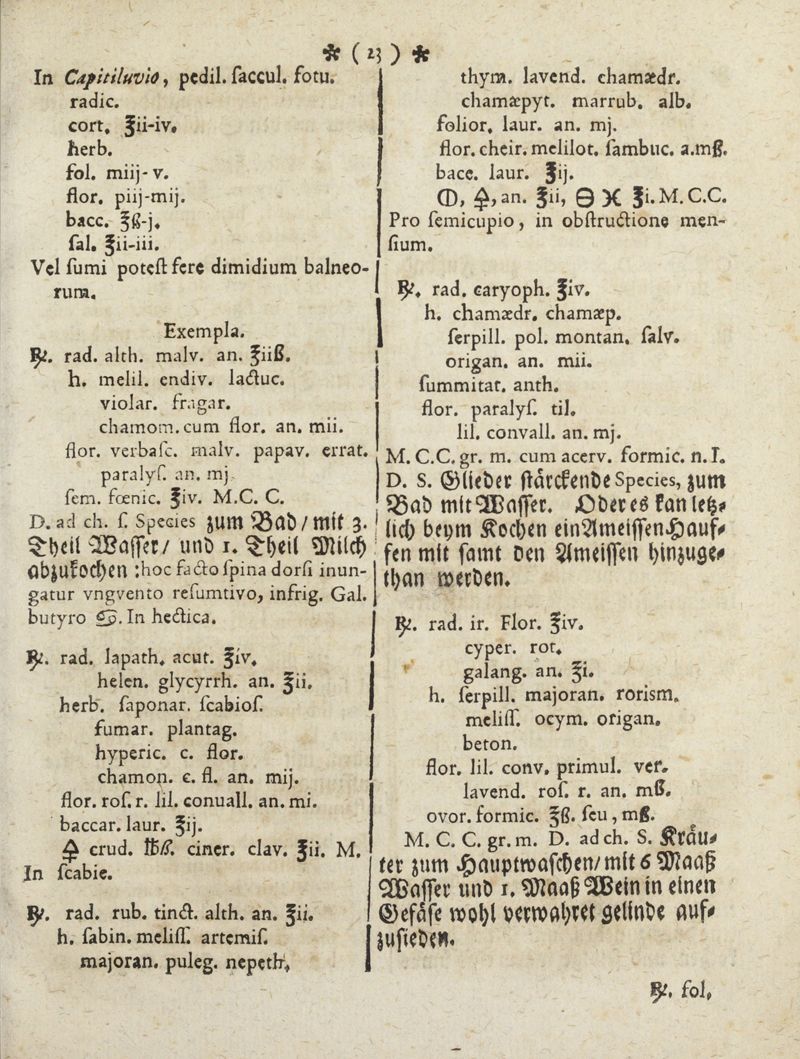 * ( 23 ) *
In Capitiluvio, pedil. ſaccul. fotu.
radic.
cort. ℥ii-iv.
herb.
fol. miij-v.
flor. piij-mij.
bacc. ℥ß-j.
ſal. ℥ii-iii.
Vel ſumi poteſt fere dimidium balneo-
rum.
Exempla.
℞. rad. alth. malv. an. ℥iiß.
h. melil. endiv. lactuc.
violar. fragar.
chamom. cum flor. an. mii.
flor. verbaſc. malv. papav. errat.
paralyſ. an. mj.
ſem. fœnic. ℥iv. M.C. C.
D. ad ch. ſ. Species zum Bad / mit 3.
Theil Waſſer / und 1. Theil Milch
abzukochen :hoc facto ſpina dorſi inun-
gatur vngvento reſumtivo, infrig. Gal.
butyro ♋. In hectica.
℞. rad. lapath. acut. ℥iv.
helen. glycyrrh. an. ℥ii.
herb. ſaponar. ſcabioſ.
fumar. plantag.
hyperic. c. flor.
chamon. c. fl. an. mij.
flor. roſ. r. lil. conuall. an. mi.
baccar. laur. ℥ij.
🜍 crud. ℔ß. ciner. clav. ℥ii. M.
In ſcabie.
℞. rad. rub. tinct. alth. an. ℥ii.
h. ſabin. meliſſ. artemiſ.
majoran. puleg. nepeth.
thym. lavend. chamædr.
chamæpyt. marrub. alb.
folior. laur. an. mj.
flor. cheir. melilot. ſambuc. a.mß.
bacc. laur. ℥ij.
🜍, an. ℥ii, ℥i. M. C.C.
Pro ſemicupio, in obſtructione men-
ſium.
℞. rad. caryoph. ℥iv.
h. chamædr. chamæp.
ſerpill. pol. montan. ſalv.
origan. an. mii.
ſummitat. anth.
flor. paralyſ. til.
lil. convall. an. mj.
M. C.C. gr. m. cum acerv. formic. n.I.
D. S. Glieder ſtärckende Species, zum
Bad mit Waſſer. Oder es kan letz-
lich beym Kochen ein Ameiſſen-Hauf-
fen mit ſamt den Ameiſſen hinzuge-
than werden.
℞. rad. ir. Flor. ℥iv.
cyper. rot.
galang. an. ℥i.
h. ſerpill. majoran. rorism.
meliſſ. ocym. origan.
beton.
flor. lil. conv. primul. ver.
lavend. roſ. r. an. mß.
ovor. formic. ℥ß. ſeu, mß.
M. C. C. gr. m. D. ad ch. S. Kräu-
ter zum Hauptwaſchen / mit 6 Maaß
Waſſer und 1. Maaß Wein in einen
Gefäſe wohl verwahret gelinde auf-
zuſieden.
℞. fol.